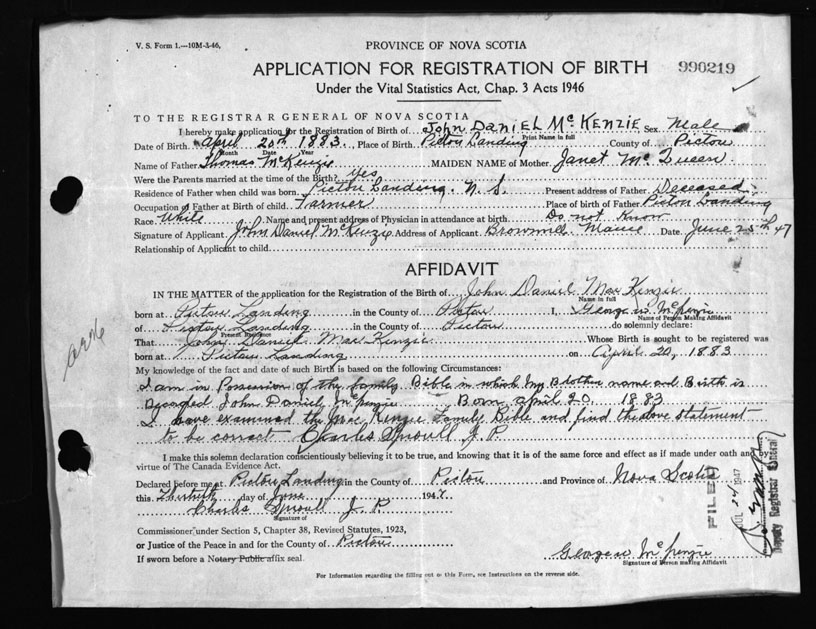 V. S. Form 1.—10M-3-46.
PROVINCE OF NOVA SCOTIA
APPLICATION FOR REGISTRATION OF BIRTH
990219
Under the Vital Statistics Act, Chap. 3 Acts 1946
TO THE REGISTRAR GENERAL OF NOVA SCOTIA
I hereby make application for the Registration of Birth of John DANIEL Mc KENZIE Sex Male
Print Name in full
Date of Birth April 20th 1883. Place of Birth Pictou Landing County of Pictou
Month Date Year
Name of Father Thomas McKenzie MAIDEN NAME of Mother Janet Mc Queen
Were the Parents married at time of the Birth? Yes
Residence of Father when child was born Pictou Landing. N. S. Present address of Father Deceased
Occupation of Father at Birth of child Farmer Place of birth of Father Pictou Landing
Race White Name and present address of Physician in attendance at birth Do not Know
Signature of Applicant John Daniel McKenzie Address of Applicant Maine Date June 25th 47
Relationship of Applicant to child
AFFIDAVIT
IN THE MATTER of the application for the Registration of the Birth of John Daniel Mac Kenzie
Name in full
born at Pictou Landing in the County of Pictou I, George W McKenzie
Name of Person Making Affidavit
of Pictou Landing in the County of Pictou do solemnly declare:
Present Residence
That John Daniel Mac Kenzie Whose Birth is sought to be registered was
born at Pictou Landing on April 20, 1883
My knowledge of the fact and date of such Birth is based on the following Circumstances:
I am in Possession of the family Bible in which my Brother name and Birth is
Recorded John Daniel McKenzie Born April 20. 1883
I have examined the Mac Kenzie Family Bible and find the above statement
to be correct Charles Sproull J. P.
I make this solemn declaration conscientiously believing it to be true, and knowing that it is of the same force and effect as if made under oath and by
virtue of The Canada Evidence Act.
Declared before me at Pictou Landing in the County of Pictou and Province of Nova Scotia
this Thirtieth day of June 1947.
Charles Sproull J. P.
Signature of
Commissioner under Section 5, Chapter 38, Revised Statutes, 1923,
or Justice of the Peace in and for the County of Pictou
If sworn before a Notary Public affix seal.
George W McKenzie
Signature of Person making Affidavit
For Information regarding the filling out of this Form, see Instructions on the reverse side.
FILED
1947
Deputy Registrar General